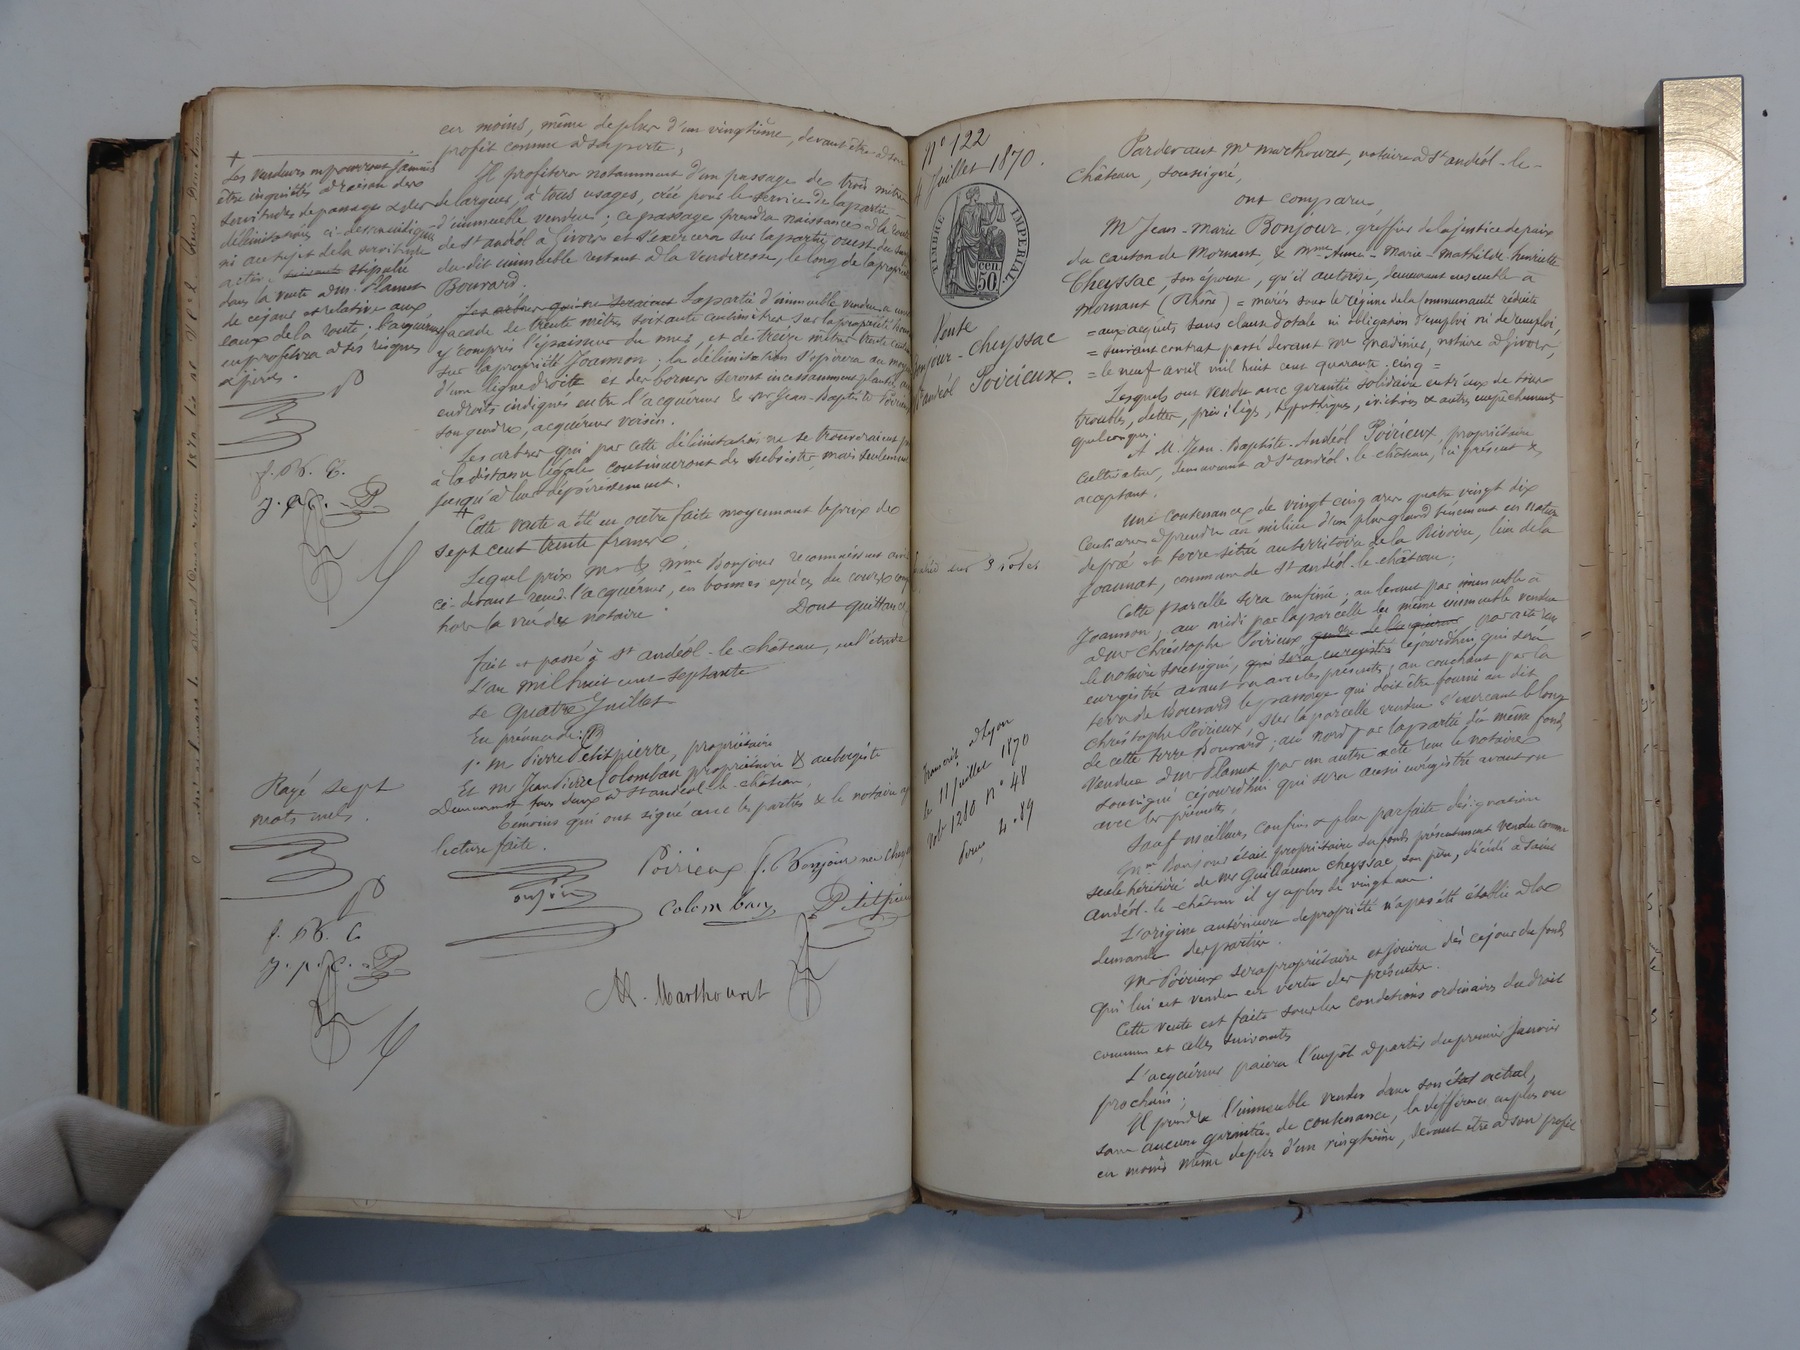 en moins, même de plus d'un vingtième, devant être à son
profit comme à sa perte;
Il profitera notamment d'un passage de trois mètres
de largeur, à tous usages, créé pour le service de la partie
d'immeuble vendue; ce passage prendra naissance à la route
de St andéol à Givors et s'exercera sur la partie ouest du
du dit immeuble restant à la venderesse, le long de la propriété
Bouvard.
Les arbres qui ne seraient La partie d'immeuble vendue a une
façade de trente mètres soixante centimètres sur la propriété
y compris l'épaisseur du mur, et de treize mètres trente
sur la propriété Joannon; la délimitation s'opérera au moyen
d'une ligne droite et des bornes seront incessamment plantées aux
endroits indiqués entre l'acquéreur & Mr Jean-Baptiste Poirieux
son gendre, acquéreur voisin.
Les arbres qui par cette délimitation ne se trouveraient pas
à la distance légale continueront de subsister mais seulement
jusqu'à leur dépérissement.
Cette vente a été en outre faite moyennant le prix de
sept cent trente francs
Lequel prix Mr & Mme Bonjour reconnaissent avoir
ci-devant reçu de l'acquéreur, en bonnes espèces du cours
hors la vue du notaire
Dont quittance
fait et passé à St andéol-le-château, en l'étude
L'an mil huit cent septante
Le quatre Juillet
En présence de:
1° Mr Pierre Petitpierre, propriétaire
Et Mr Jean Pierre Colomban propriétaire & aubergiste
Demeurant tous deux à St andéol-le-château,
Témoins qui ont signé avec les parties & le notaire
lecture faite.
Poirieux f. Bonjour née
Colomban Petitpierre
M. Marthouret
+
Les vendeurs ne pourront jamais
être inquiétés à raison des
servitudes de passage & des
délimitations ci-dessus indiquées
ni au sujet de la servitude
active suivante stipulée
dans la vente à Mr Plamet
de ce jour et relative aux
eaux de la route. L'acquéreur
en profitera à ses risques
& périls.
f. B. C.
J. p. C. P
Rayé sept
mots nuls.
f. B. C.
J. p. C. P
N° 122
4 Juillet 1870.
TIMBRE IMPERIAL
50 cen
Vente
Bonjour-Cheyssac
St andéol Poirieux.
sur 3 rôles
Transcrit à Lyon
le 11 Juillet 1870
Vol 1280 n° 48
4.89
Pardevant Me Marthouret, notaire à St andéol-le-
château, soussigné,
ont comparu,
Mr Jean-Marie Bonjour, greffier de la justice de paix
du canton de Mornant, & Mme Anne-Marie-Mathilde-henriette
Cheyssac, son épouse, qu'il autorise, demeurant ensemble à
Mornant (Rhône) = mariés sous le régime de la Communauté réduite
= aux acquêts, sans clause dotale ni obligation d'emploi ni de remploi,
= suivant contrat passé devant Me Madinier, notaire à Givors,
= le neuf avril mil huit cent quarante-cinq =
Lesquels ont vendu avec garantie solidaire entr'eux de tous
troubles, dettes, privilèges, hypothèques, évictions & autres empêchements
quelconques.
A M. Jean-Baptiste-Andéol Poirieux, propriétaire
cultivateur, demeurant à St andéol-le-château, ici présent &
acceptant,
Une contenance de vingt cinq ares quatre vingt dix
centiares à prendre au milieu d'un plus grand tènement en nature
de pré et terre situé au territoire de la Rivoire, lieu de la
Joannat, commune de St andéol-le-château;
Cette parcelle sera confinée; au levant par immeuble à
Joannon, au midi par la parcelle du même immeuble vendue
à Mr Christophe Poirieux par acte reçu
le notaire soussigné, qui sera enregistré cejourd'hui, qui sera
enregistré avant ou avec les présentes; au couchant par la
terre de Bouvard le passage qui doit être fourni au dit
Christophe Poirieux, sur la parcelle vendue s'exerçant le long
de cette terre Bouvard; au nord par la partie du même fonds,
vendue à Mr Plamet par un autre acte reçu le notaire
soussigné cejourd'hui qui sera aussi enregistré avant ou
avec les présentes,
Sauf meilleurs confins & plus parfaite désignation
Mme Bonjour était propriétaire du fonds présentement vendu comme
seule héritière de Mr Guillaume Cheyssac son père, décédé à Saint
andéol-le-château il y a plus de vingt ans.
L'origine antérieure de propriété n'a pas été établie à la
demande des parties.
Mr Poirieux sera propriétaire et jouira dès ce jour du fonds
qui lui est vendu en vertu des présentes.
Cette vente est faite sous les conditions ordinaires du droit
commun et celles suivantes
L'acquéreur paiera l'impôt à partir du premier Janvier
prochain;
Il prendra l'immeuble vendu dans son état actuel,
sans aucune garantie de contenance, la différence en plus ou
en moins même de plus d'un vingtième, devant être à son profit